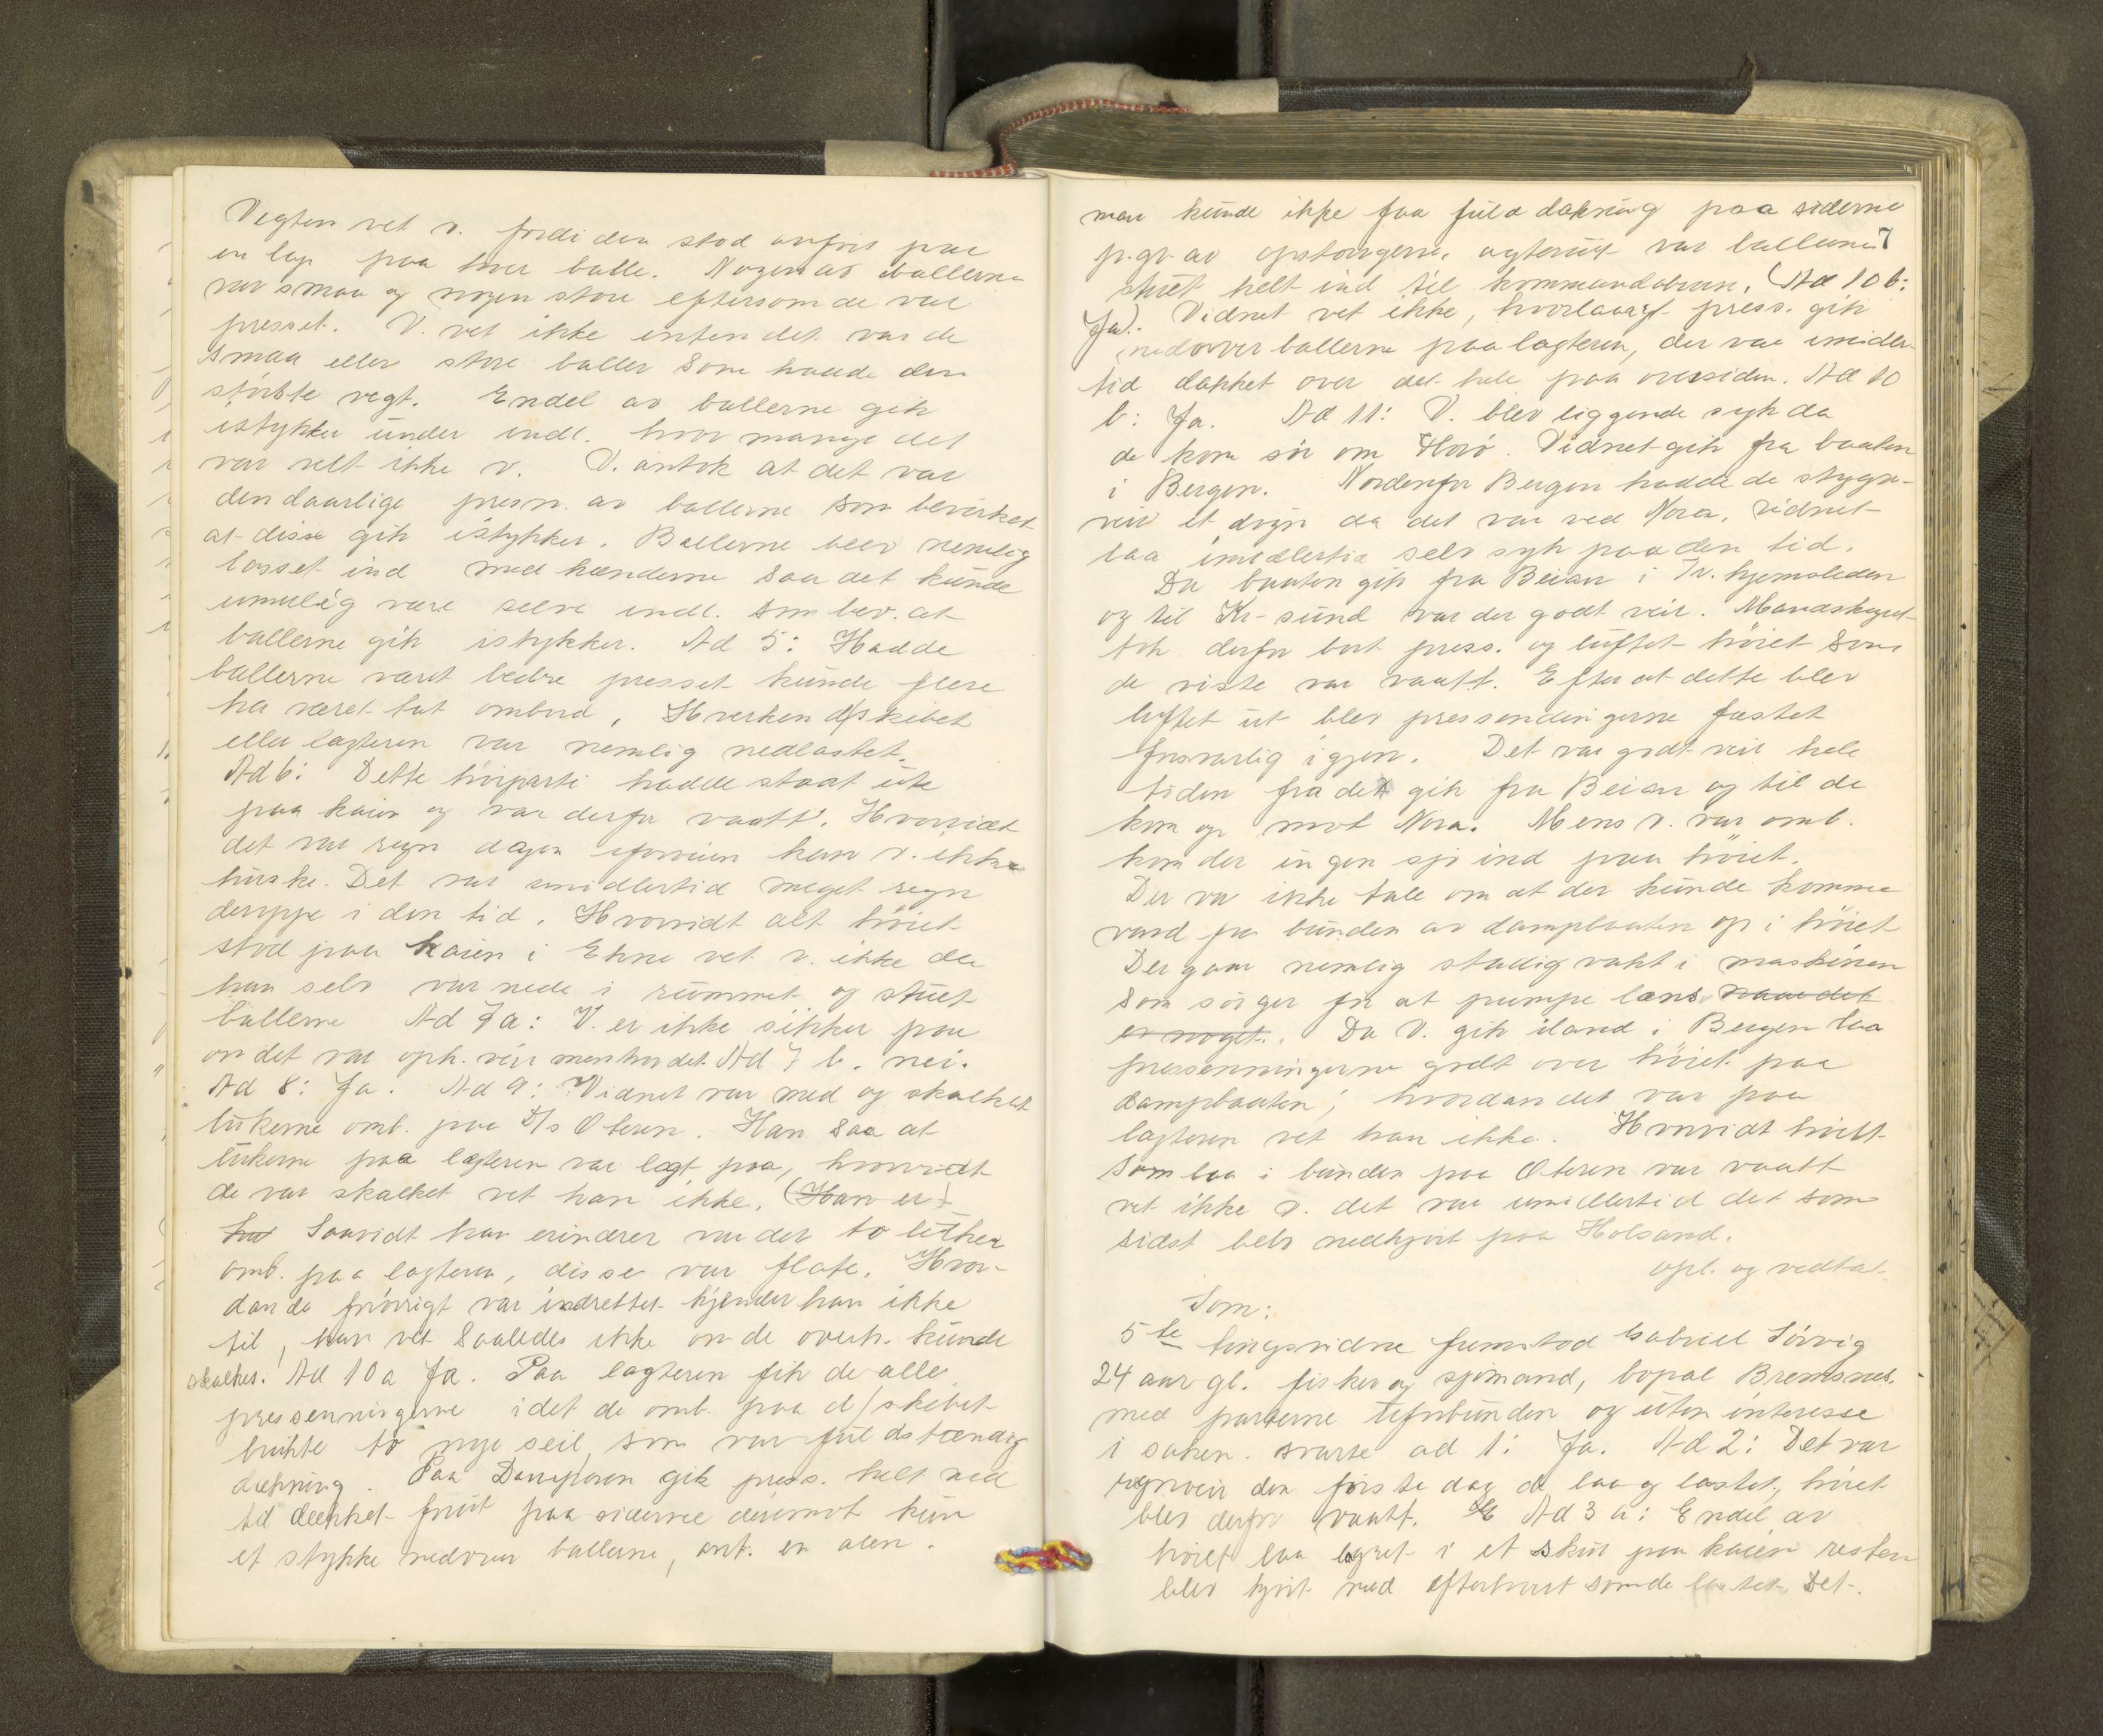 Vegten vet v. fordi den stod anført paa
en lap paa hver balle. Nogen av ballerne
var smaa og nogen store eftersom de var
presset. V. vet ikke enten det var de
smaa eller store baller som hadde den
største vegt. Endel av ballerne gik
istykker under indl. hvor mange det
var vet ikke v. V. antok at det var
den daarlige presn. av ballerne som bevirket
at disse gik istykker. Ballerne blev nemlig
lasset ind med hænderne saa det kunde
umulig være selve indl. som bev. at
ballerne gik istykker. Ad 5: Hadde
ballerne været bedre presset kunde flere
ha været tat ombord, Hverken d/skibet
eller lagteren var nemlig nedlastet.
Ad 6: Dette høiparti hadde staat ute
paa kaien og var derfor vaatt. Hvorvidt
det var regn dagen iforveien kan v. ikke
huske. Det var imidlertid meget regn
deroppe i den tid. Hvorvidt alt høiet
stod paa kaien i Ekne vet v. ikke da
han selv var nede i rummet og stuet
ballerne Ad 7a: V. er ikke sikker paa
om det var oph. veir men tror det. Ad 7 b. nei.
Ad 8: Ja. Ad 9: Vidnet var med og skalket
lukerne omb. paa D/s Oteren. Han saa at
lukerne paa lagteren var lagt paa, hvorvidt
de var skalket vet han ikke. (Han er)
har Saavidt han erindrer var der to luker
omb. paa lagteren, disse var flate. Hvor-
dan de forøvrigt var indrettet kjender han ikke
til, han vet saaledes ikke om de overh. kunde
skalkes. Ad 10a Ja. Paa lagteren fik de alle
pressenningerne idet de omb. paa d/skibet
brukte to nye seil som var fuldstændig
dækning. Paa Dampbaaten gik press. helt ned
til dækket forut paa siderne derimot kun
et stykke nedover ballerne, ant. en alen.
man kunde ikke faa fuld dækning paa siderne 7
p.gr.av opstangerne, agterut var ballerne
stuet helt ind til kommandobroen. (Ad 10 b:
Ja). Vidnet vet ikke, hvorlangt press. gik
nedover ballerne paa lagteren, der var imidler-
tid dækket over det hele paa oversiden. Ad 10
b: Ja. Ad 11: V. blev liggende syk da
de kom sør om Florø. Vidnet gik fra baaten
i Bergen. Nordenfor Bergen hadde de stygge-
veir et døgn da det var ved Nora, vidnet
laa imidlertid selv syk paa den tid.
Da baaten gik fra Beian i Tr. hjemsleden
og til Kr-sund var der godt veir. Mandskapet
tok derfor bort press. og luftet høiet som
de visste var vaatt. Efter at dette blev
luftet ut blev pressendingerne fæstet
forsvarlig igjen. Det var godt veir hele
tiden fra det gik fra Beian og til de
kom op mot Nora. Mens v. var omb.
kom der ingen sjø ind paa høiet.
Der var ikke tale om at der kunde komme
vand fra bunden av dampbaaten op i høiet
Der gaar nemlig stadig vakt i maskinen
som sørger for at pumpe læns naar det
er noget. Da V. gik iland i Bergen laa
pressenningerne godt over høiet paa
dampbaaten; hvordan det var paa
lagteren vet han ikke. Hvorvidt høiet
som laa i bunden paa Oteren var vaatt
vet ikke v. det var imidlertid det som
sidst blev nedkjørt paa Holsand.
opl. og vedtat.
Som:
5te tingsvidne fremstod Gabriel Sørvig
24 aar gl. fisker og sjømand, bopæl Bremsnes.
med parterne uforbunden og uten interesse
i saken. svarte ad 1: Ja. Ad 2: Det var
regnveir den første dag de laa og lastet, høiet
blev derfor vaatt. E Ad 3 a: Endel av
høiet laa lagret i et skur paa kaien resten
blev kjørt ned efterhvert som de lastet. Det